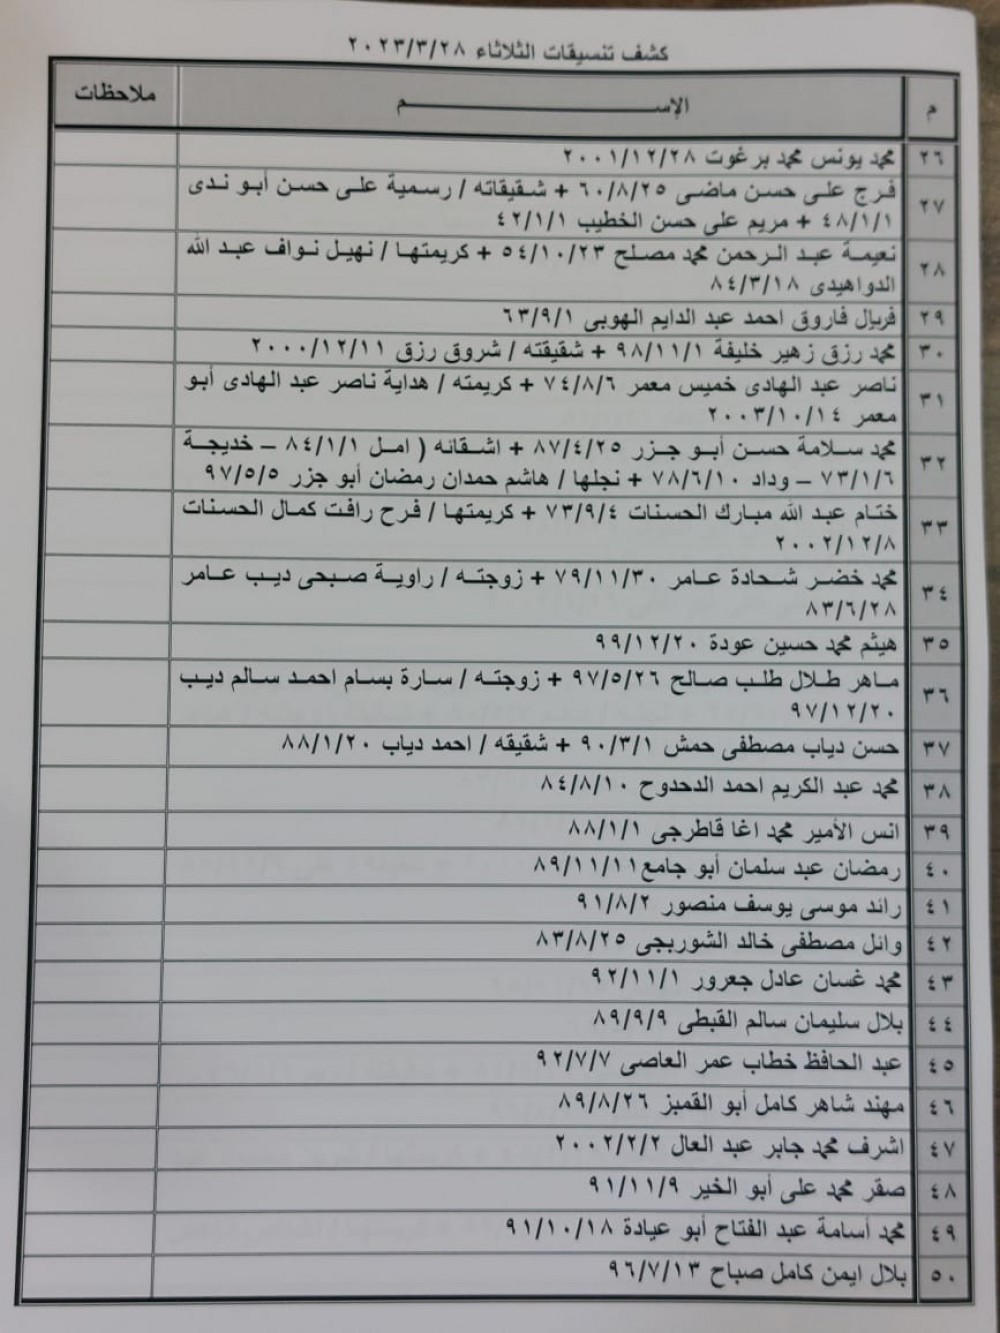 كشف تنسيقات الثلاثاء ٢٠٢٣/٣/٢٨
م الإســـــم ملاحظات
٢٦ محمد يونس محمد برغوت ٢٠٠١/١٢/٢٨
٢٧ فرج على حسن ماضى ٦٠/٨/٢٥ + شقيقاته / رسمية على حسن أبو ندى
٤٨/١/١ + مريم على حسن الخطيب ٤٢/١/١
٢٨ نعيمة عبد الرحمن محمد مصلح ٥٤/١٠/٢٣ + كريمتها / نهيل نواف عبد الله
الدواهيدى ٨٤/٣/١٨
٢٩ فريال فاروق احمد عبد الدايم الهوبى ٦٣/٩/١
٣٠ محمد رزق زهير خليفة ٩٨/١١/١ + شقيقته / شروق رزق ٢٠٠٠/١٢/١١
٣١ ناصر عبد الهادى خميس معمر ٧٤/٨/٦ + كريمته / هداية ناصر عبد الهادى أبو
معمر ٢٠٠٣/١٠/١٤
٣٢ محمد سلامة حسن أبو جزر ٨٧/٤/٢٥ + اشقائه ( امل ٨٤/١/١ – خديجة
٧٣/١/٦ – وداد ٧٨/٦/١٠ + نجلها / هاشم حمدان رمضان أبو جزر ٩٧/٥/٥
٣٣ ختام عبد الله مبارك الحسنات ٧٣/٩/٤ + كريمتها / فرح رافت كمال الحسنات
٢٠٠٢/١٢/٨
٣٤ محمد خضر شحادة عامر ٧٩/١١/٣٠ + زوجته / راوية صبحى ديب عامر
٨٣/٦/٢٨
٣٥ هيثم محمد حسين عودة ٩٩/١٢/٢٠
٣٦ ماهر طلال طلب صالح ٩٧/٥/٢٦ + زوجته / سارة بسام احمد سالم ديب
٩٧/١٢/٢٠
٣٧ حسن دياب مصطفى حمش ٩٠/٣/١ + شقيقه / احمد دياب ٨٨/١/٢٠
٣٨ محمد عبد الكريم احمد الدحدوح ٨٤/٨/١٠
٣٩ انس الأمير محمد اغا قاطرجى ٨٨/١/١
٤٠ رمضان عبد سلمان أبو جامع ٨٩/١١/١١
٤١ رائد موسى يوسف منصور ٩١/٨/٢
٤٢ وائل مصطفى خالد الشوربجى ٨٣/٨/٢٥
٤٣ محمد غسان عادل جعرور ٩٢/١١/١
٤٤ بلال سليمان سالم القبطى ٨٩/٩/٩
٤٥ عبد الحافظ خطاب عمر العاصى ٩٢/٧/٧
٤٦ مهند شاهر كامل أبو القمبز ٨٩/٨/٢٦
٤٧ اشرف محمد جابر عبد العال ٢٠٠٢/٢/٢
٤٨ صقر محمد على أبو الخير ٩١/١١/٩
٤٩ محمد أسامة عبد الفتاح أبو عيادة ٩١/١٠/١٨
٥٠ بلال ايمن كامل صباح ٩٦/٧/١٣